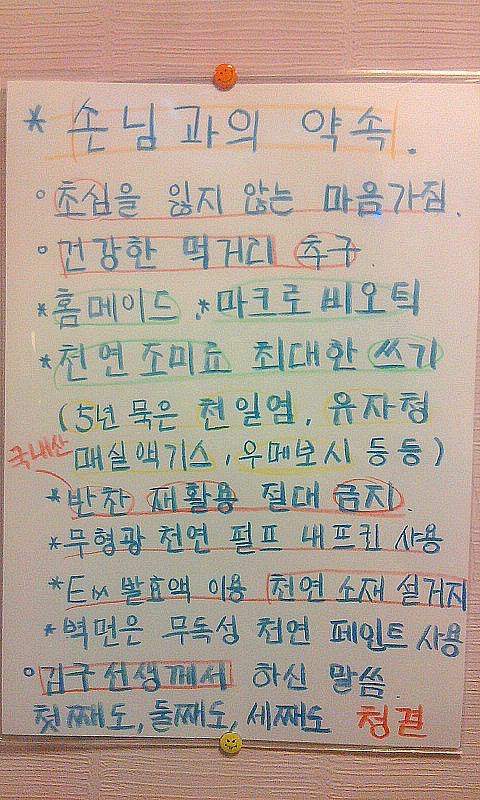 * 손님과의 약속.
◦ 초심을 잃지 않는 마음가짐.
◦ 건강한 먹거리 추구.
* 홈메이드, * 마크로비오틱
* 천연조미료 최대한 쓰기
(5년 묵은 천일염, 유자청
국내산
매실액기스, 우메보시 등등)
* 반찬 재활용 절대 금지.
* 무형광 천연 펄프 내프킨 사용
* EM 발효액 이용 천연 소재 설거지
* 벽면은 무독성 천연 페인트 사용
◦ 김구선생께서 하신 말씀.
첫째도, 둘째도, 세째도 청결